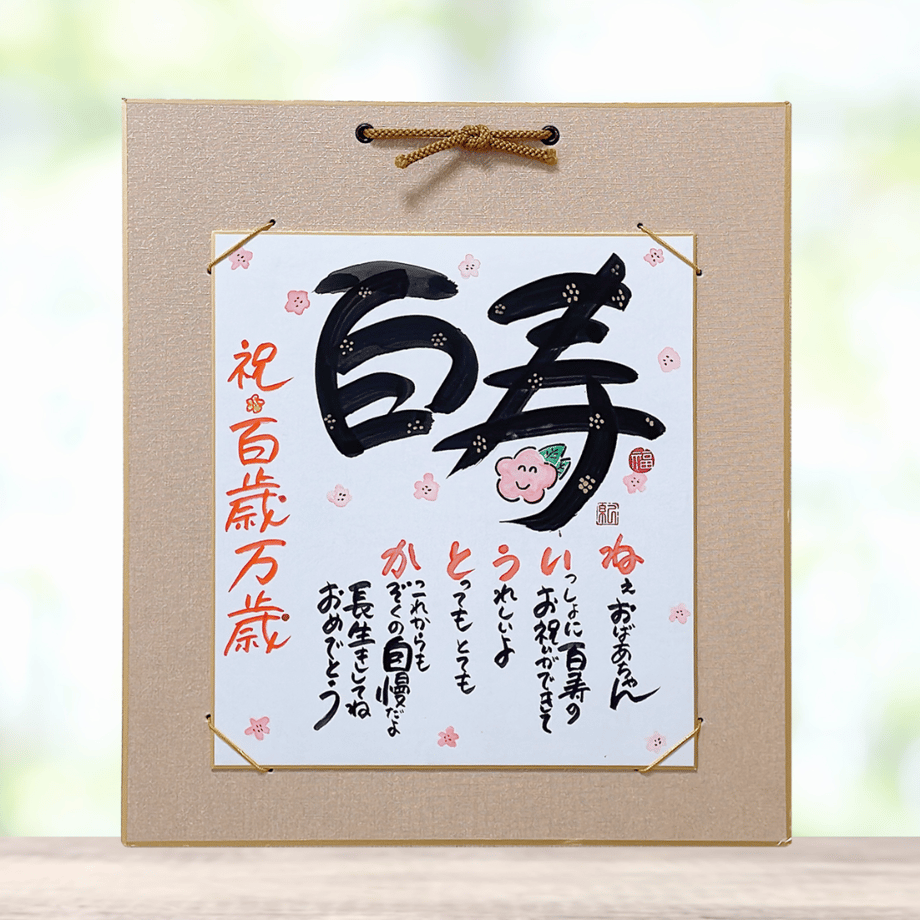 百寿
福
ねぇおばあちゃん
いっしょに百寿の
お祝いができて
うれしいよ
とってもとても
これからも
かぞくの自慢だよ
長生きしてね
おめでとう
祝百歳万歳